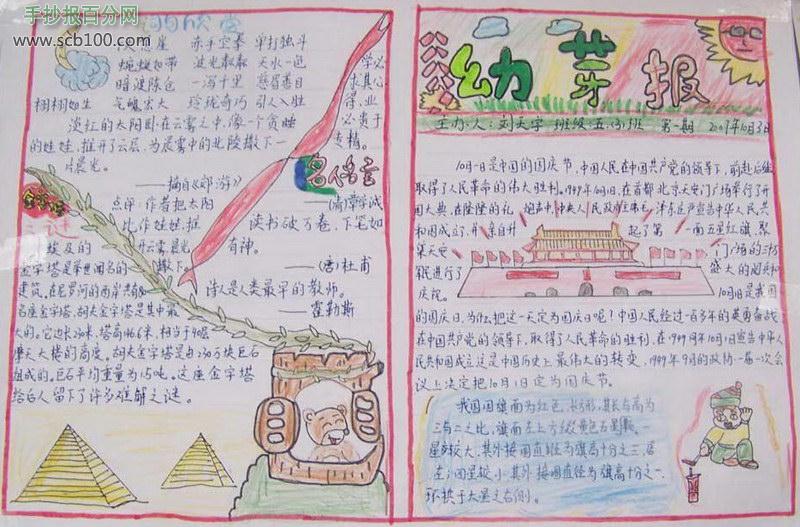 手抄报百分网
www.scb100.com
词欣赏
悬崖 赤手空拳 单打独斗
蜿蜒如带 波光粼粼 天水一色
暗渡陈仓 一泻千里 慈眉善目
栩栩如生 气魄宏大 玲珑奇巧 引人入胜
淡红的太阳卧在云雾之中,像一个贪睡
的娃娃,推开了云层,为晨雾中的北陵撒下一
片晨光。
——摘自《郊游》
点评:作者把太阳
比作娃娃,推
开云雾,晨光
撒下
学必
求其心
得,业
必贵于
专精。
名人格言
——(清)章学诚
读书破万卷,下笔如
有神。
——(唐)杜甫
诗人是人类最早的教师。
——霍勒斯
之谜
埃及的
金字塔是举世闻名的
建筑,在尼罗河的西岸共有
名座金字塔,胡夫金字塔是其中最
大的。它边长230米,塔高146.6米,相当于40层
摩天大楼的高度。胡夫金字塔是由230万块巨石
组成的。巨石平均重量为15吨。这座金字塔
给后人留下了许多难解之谜。
幼芽报
主办人:刘天宇 班级:五(3)班 第一期 2009年10月3日
10月1日是中国的国庆节,中国人民在中国共产党的领导下,前赴后继
取得了人民革命的伟大胜利。1949年10月1日,在首都北京天安门广场举行开
国大典,在隆隆的礼炮声中,中央人民政府主席毛泽东庄严宣告中华人民共
和国成立了,并亲自升起了第一面五星红旗,聚
集天安门广场的30万
军民进行了盛大的阅兵和
庆祝。10月1日是我国
的国庆日,为什么把这一天定为国庆日呢?中国人民经过一百多年的英勇奋战
在中国共产党的领导下,取得了人民革命的胜利,在1949年10月1日宣告中华人
民共和国成立,这是中国历史上最伟大的转变,1949年9月的政协一届一次会
议上决定把10月1日定为国庆节。
我国国旗面为红色,长方形,其长与高为
三与二之比,旗面左上方缀黄色五星五颗。一
星较大,其外接圆直径为旗高十分之三,居
左;四星较小,其外接圆直径为旗高十分之一,
环拱于大星之右侧。